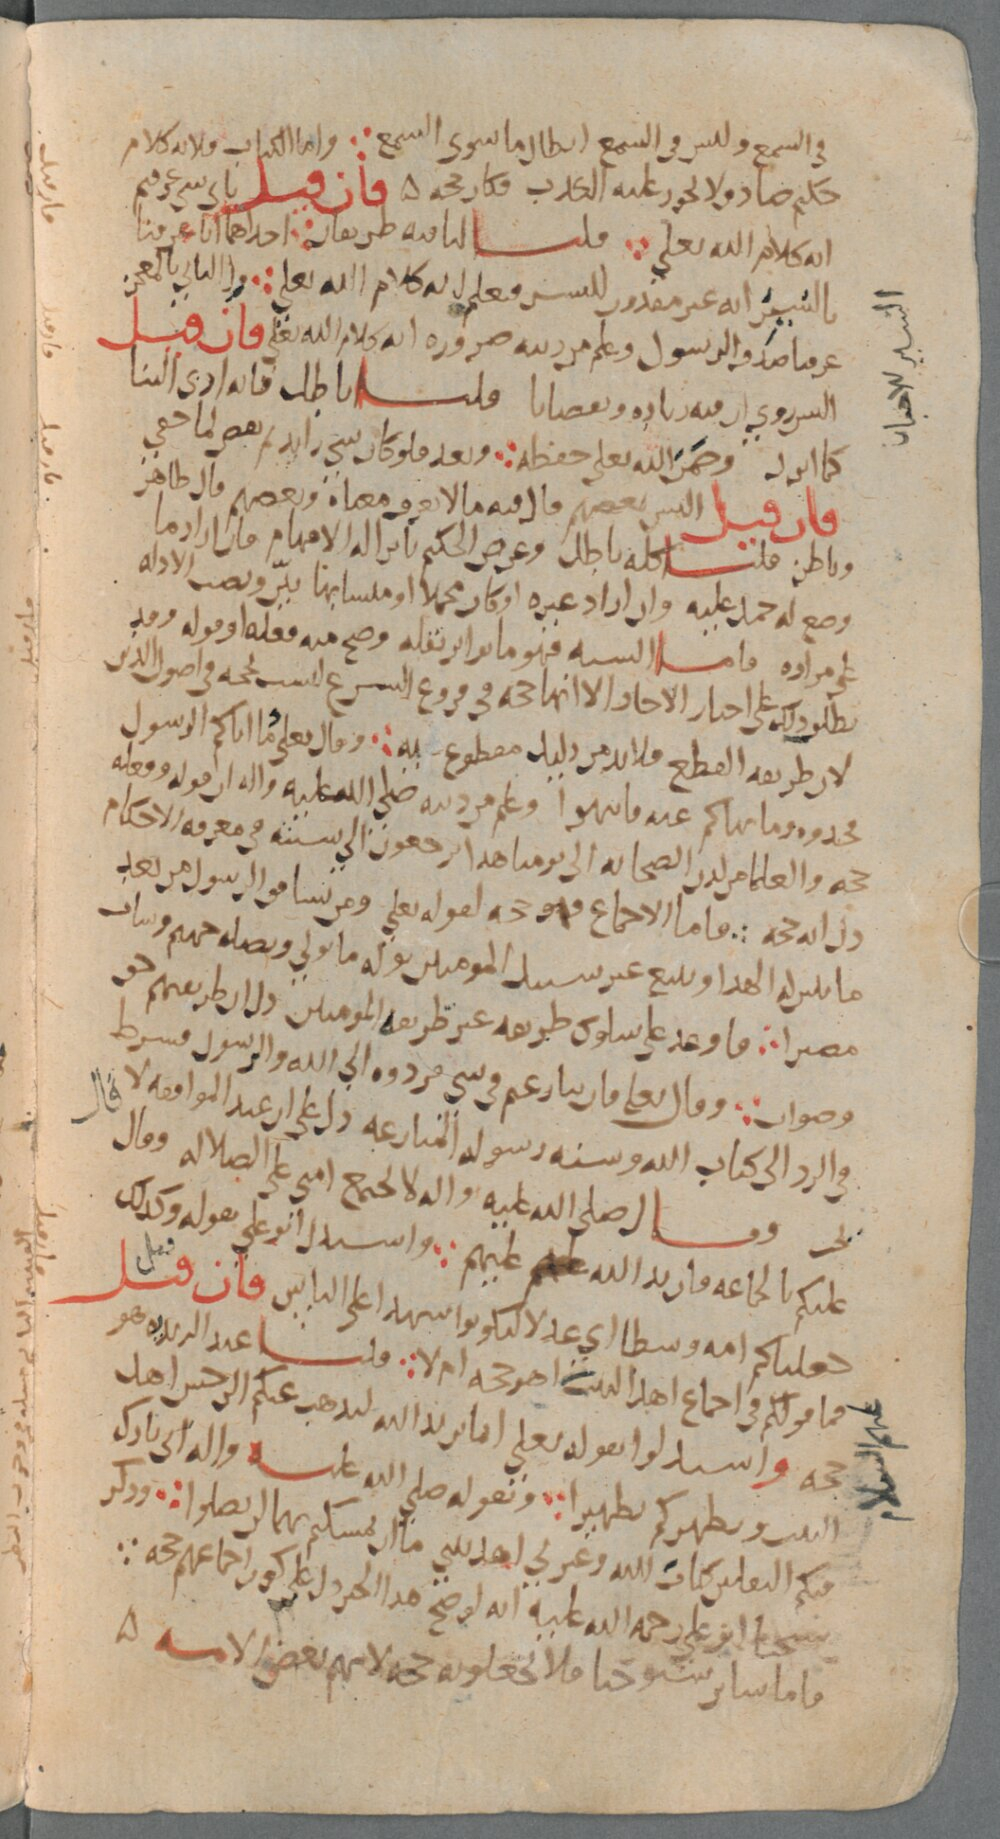 في السمع وليس في السمع ابطال ما سوى السمع ∴ واما الكتاب فلانه كلام
حكيم صادق ولا يجوز عليه الكذب فكان حجة ٥ فان قيل باي شي عرفتم
انه كلام الله تعلى ∴ قلنا لنا فيه طريقان ∴ احدهما انا عرفنا
انه غير مقدور للبشر فعلم انه كلام الله تعلى ∴ والثاني بالمعجز
عرفنا صدق الرسول وعلم من دينه ضرورة انه كلام الله تعلى فان قيل
اليس روي ان فيه زيادة ونقصانا قلنا باطل فانه ادى الينا
كما انزل وضمن الله تعلى حفظه ∴ وبعد فلو كان شي زايد او نقص لما خفي
فان قيل اليس بعضهم قال فيه ما لا يعرف معناه وبعضهم قال ظاهر
وباطن قلنا كله باطل وغرض الحكيم بانزاله الافهام فان اراد ما
وضع له حمل عليه وان اراد غيره او كان مجملا او متشابها بين ونصب الادلة
على مراده فاما السنة فهو ما تواتر نقله وصح منه فعله او قوله وقد
يطلق ذلك على اخبار الاحاد الا انها حجة في فروع الشرع ليست بحجة في اصول الدين
لان طريقه القطع فلا بد من دليل مقطوع به ∴ وقال تعلى ما اتاكم الرسول
فخذوه وما نهاكم عنه فانتهوا وعلم من دينه صلى الله عليه واله ان قوله وفعله
حجة والعلما من لدن الصحابة الى يومنا هذا يرجعون الى سنته في معرفة الاحكام
دل انه حجة ∴ فاما الاجماع فهو حجة لقوله تعلى ومن يشاقق الرسول من بعد
ما تبين له الهدا ويتبع غير سبيل المومنين نوله ما تولى ونصله جهنم وسات
مصيرا ∴ فاوعد على سلوك طريقة غير طريقة المومنين دل ان طريقتهم حق
وصواب ∴ وقال تعلى فان تنازعتم في شي فردوه الى الله والرسول فشرط
في الرد الى كتاب الله وسنة رسوله المنازعة دل على ان عند الموافقة لا
قال
وقال صلى الله عليه واله لا تجتمع امتي على الضلالة وقال
عليكم بالجماعة فان يد الله عليهم ∴ واستدل ابو علي بقوله وكذلك
جعلناكم امة وسطا اي عدلا لتكونوا شهدا على الناس فان قيل
فما قولكم في اجماع اهل البيت اهو حجة ام لا ∴ قلنا عند الزيدية هو
حجة واستدلوا بقوله تعلى انما يريد الله ليذهب عنكم الرجس اهل
البيت ويطهركم تطهيرا ∴ وبقوله صلى الله عليه واله اني تارك
فيكم الثقلين كتاب الله وعترتي اهل بيتي ما ان تمسكتم بهما لن تضلوا ∴ وذكر
شيخنا ابو علي رحمة الله عليه انه لو صح هذا الخبر دل على كون اجماعهم حجة ∴
فاما ساير شيوخنا فلا يجعلونه حجة لانهم بعض الامة ٥
عليهم السلام